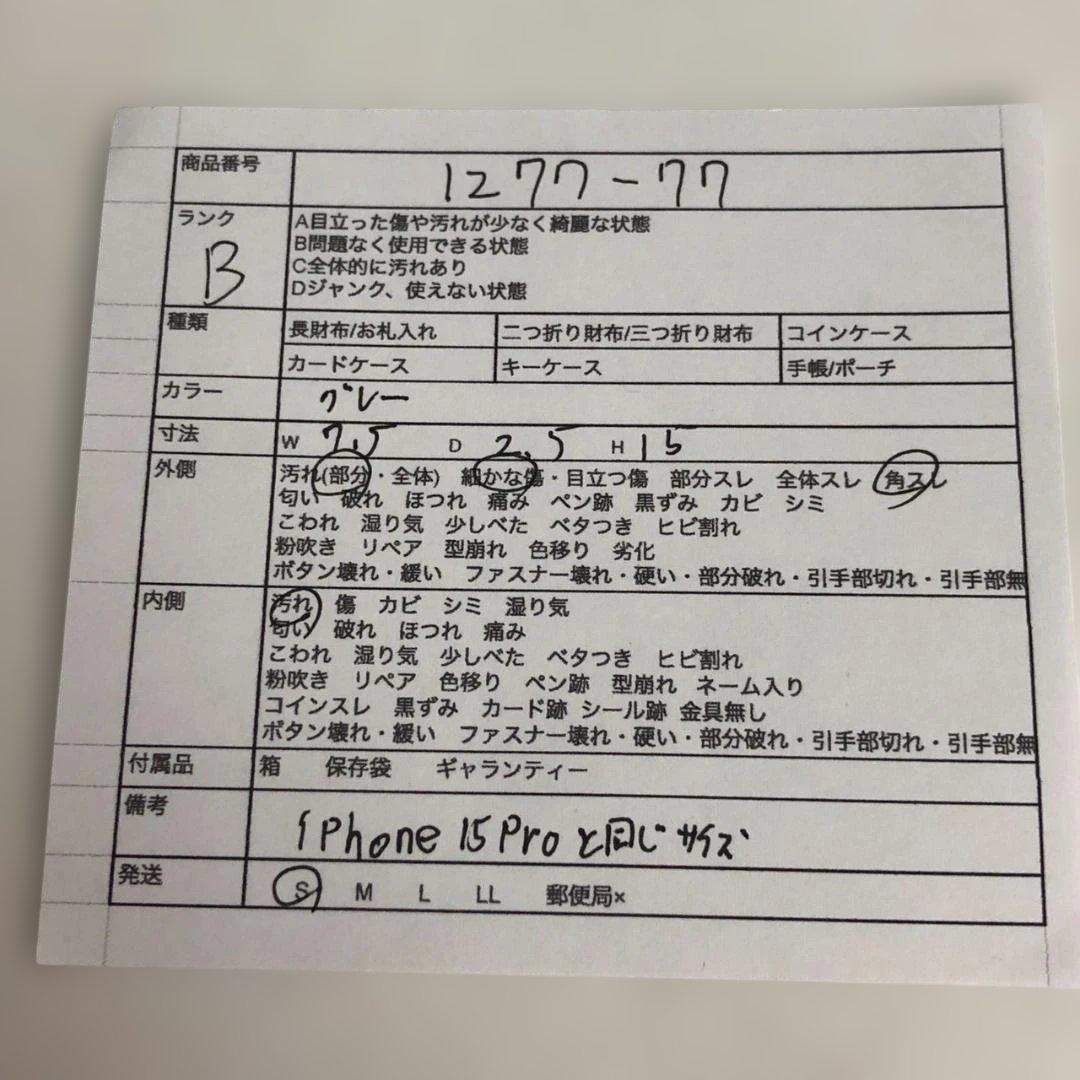 商品番号 1277-77
ランク B
A目立った傷や汚れが少なく綺麗な状態
B問題なく使用できる状態
C全体的に汚れあり
Dジャンク、使えない状態
種類
長財布/お札入れ 二つ折り財布/三つ折り財布 コインケース
カードケース キーケース 手帳/ポーチ
カラー グレー
寸法 W 7.5 D 2.5 H 15
外側
汚れ(部分・全体) 細かな傷・目立つ傷 部分スレ 全体スレ 角スレ
匂い 破れ ほつれ 痛み ペン跡 黒ずみ カビ シミ
こわれ 湿り気 少しべた ベタつき ヒビ割れ
粉吹き リペア 型崩れ 色移り 劣化
ボタン壊れ・緩い ファスナー壊れ・硬い・部分破れ・引手部切れ・引手部無
内側
汚れ 傷 カビ シミ 湿り気
匂い 破れ ほつれ 痛み
こわれ 湿り気 少しべた ベタつき ヒビ割れ
粉吹き リペア 色移り ペン跡 型崩れ ネーム入り
コインスレ 黒ずみ カード跡 シール跡 金具無し
ボタン壊れ・緩い ファスナー壊れ・硬い・部分破れ・引手部切れ・引手部無
付属品 箱 保存袋 ギャランティー
備考 iPhone 15 Proと同じサイズ
発送 S M L LL 郵便局×